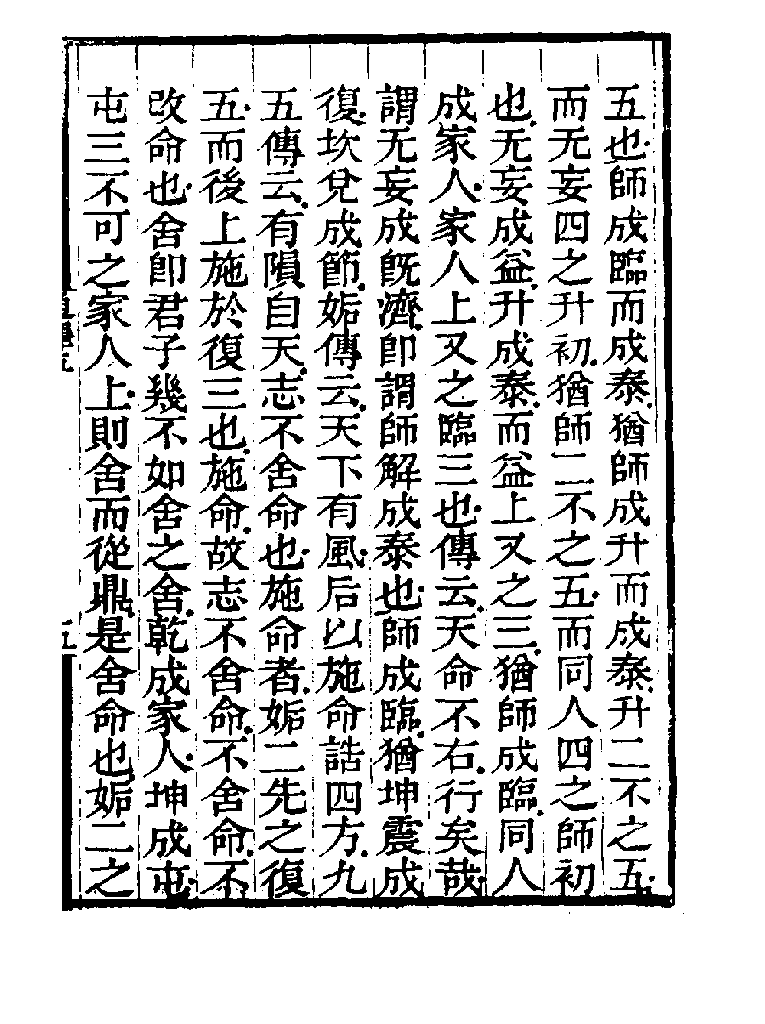 五也師成臨而成泰猶師成升而成泰升二不之五
而无妄四之升初猶師二不之五而同人四之師初
也无妄成益升成泰而益上又之三猶師成臨同人
成家人家人上又之臨三也傳云天命不右行矣哉
謂无妄成旣濟卽謂師解成泰也師成臨猶坤震成
復坎兌成節姤傳云天下有風后以施命誥四方九
五傳云有隕自天志不舍命也施命者姤二先之復
五而後上施於復三也施命故志不舍命不舍命不
改命也舍卽君子幾不如舍之舍乾成家人坤成屯
屯三不可之家人上則舍而從鼎是舍命也姤二之